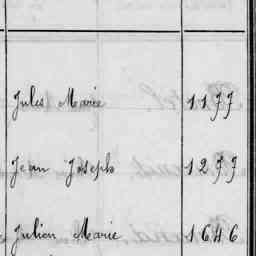 Jules Marie 1177
Jean Joseph 1277
Julien Marie 1646